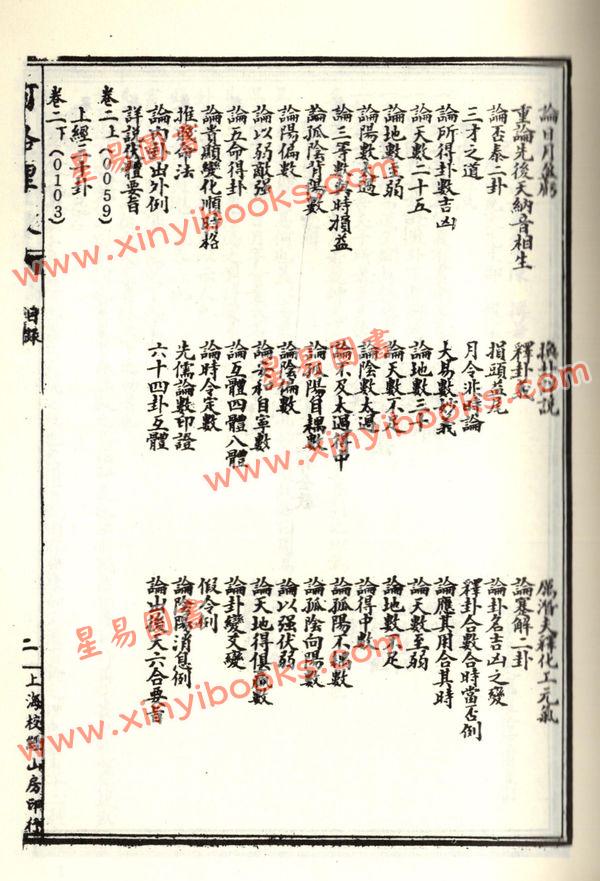 論日月 說 釋化工元氣
重論先後天納音相生 釋卦 論蹇解二卦
論否泰二卦 損頭益尾 論卦名吉凶之變
三才之道 月令非時論 釋卦合數合時當否例
論所得卦數吉凶 大易數妙義 論應其用合其時
論天數二十五 論地數三十 論天數至弱
論地數至弱 論天數不足 論地數不足
論陽數太過 論陰數太過 論得中數
論三等數 時損益 論不及太過得中 論孤陽不偶數
論孤陰背陽數 論孤陽自耦數 論孤陰向陽數
論陽偏數 論陰偏數 論以強伏弱
論以弱敵強 論安和自寧數 論天地得俱 數
論五命得卦 論互體四體八體 論卦變爻變
論貴顯變化順時格 論時令定數 假令例
推 命法 先儒論數印證 論陰陽消息例
論內卦出外例 六十四卦互體 論出後天六合要旨
詳說伐體要旨
卷二上(0059)
上經三十卦
卷二下(0103)
目錄
二
上海校經山房印行
星易图書
www.xinyibooks.com
星易图書
www.xinyibooks.com
星易图書
www.xinyibooks.com